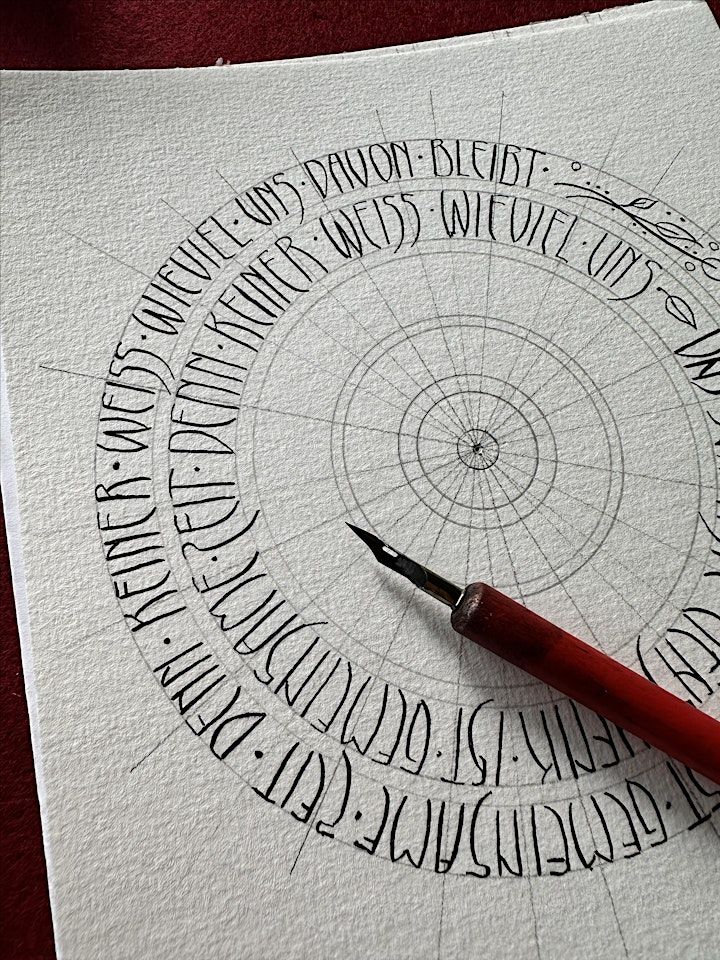 GEMEINSAME · ZEIT · DENN · KEINER · WEISS · WIEVIEL · UNS · DAVON · BLEIBT ·
IST · GEMEINSAME · ZEIT · DENN · KEINER · WEISS · WIEVIEL · UNS ·